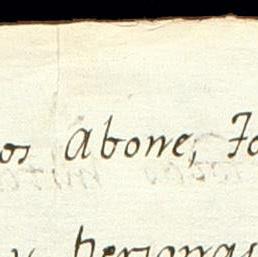 os Abone, Jo
y personas